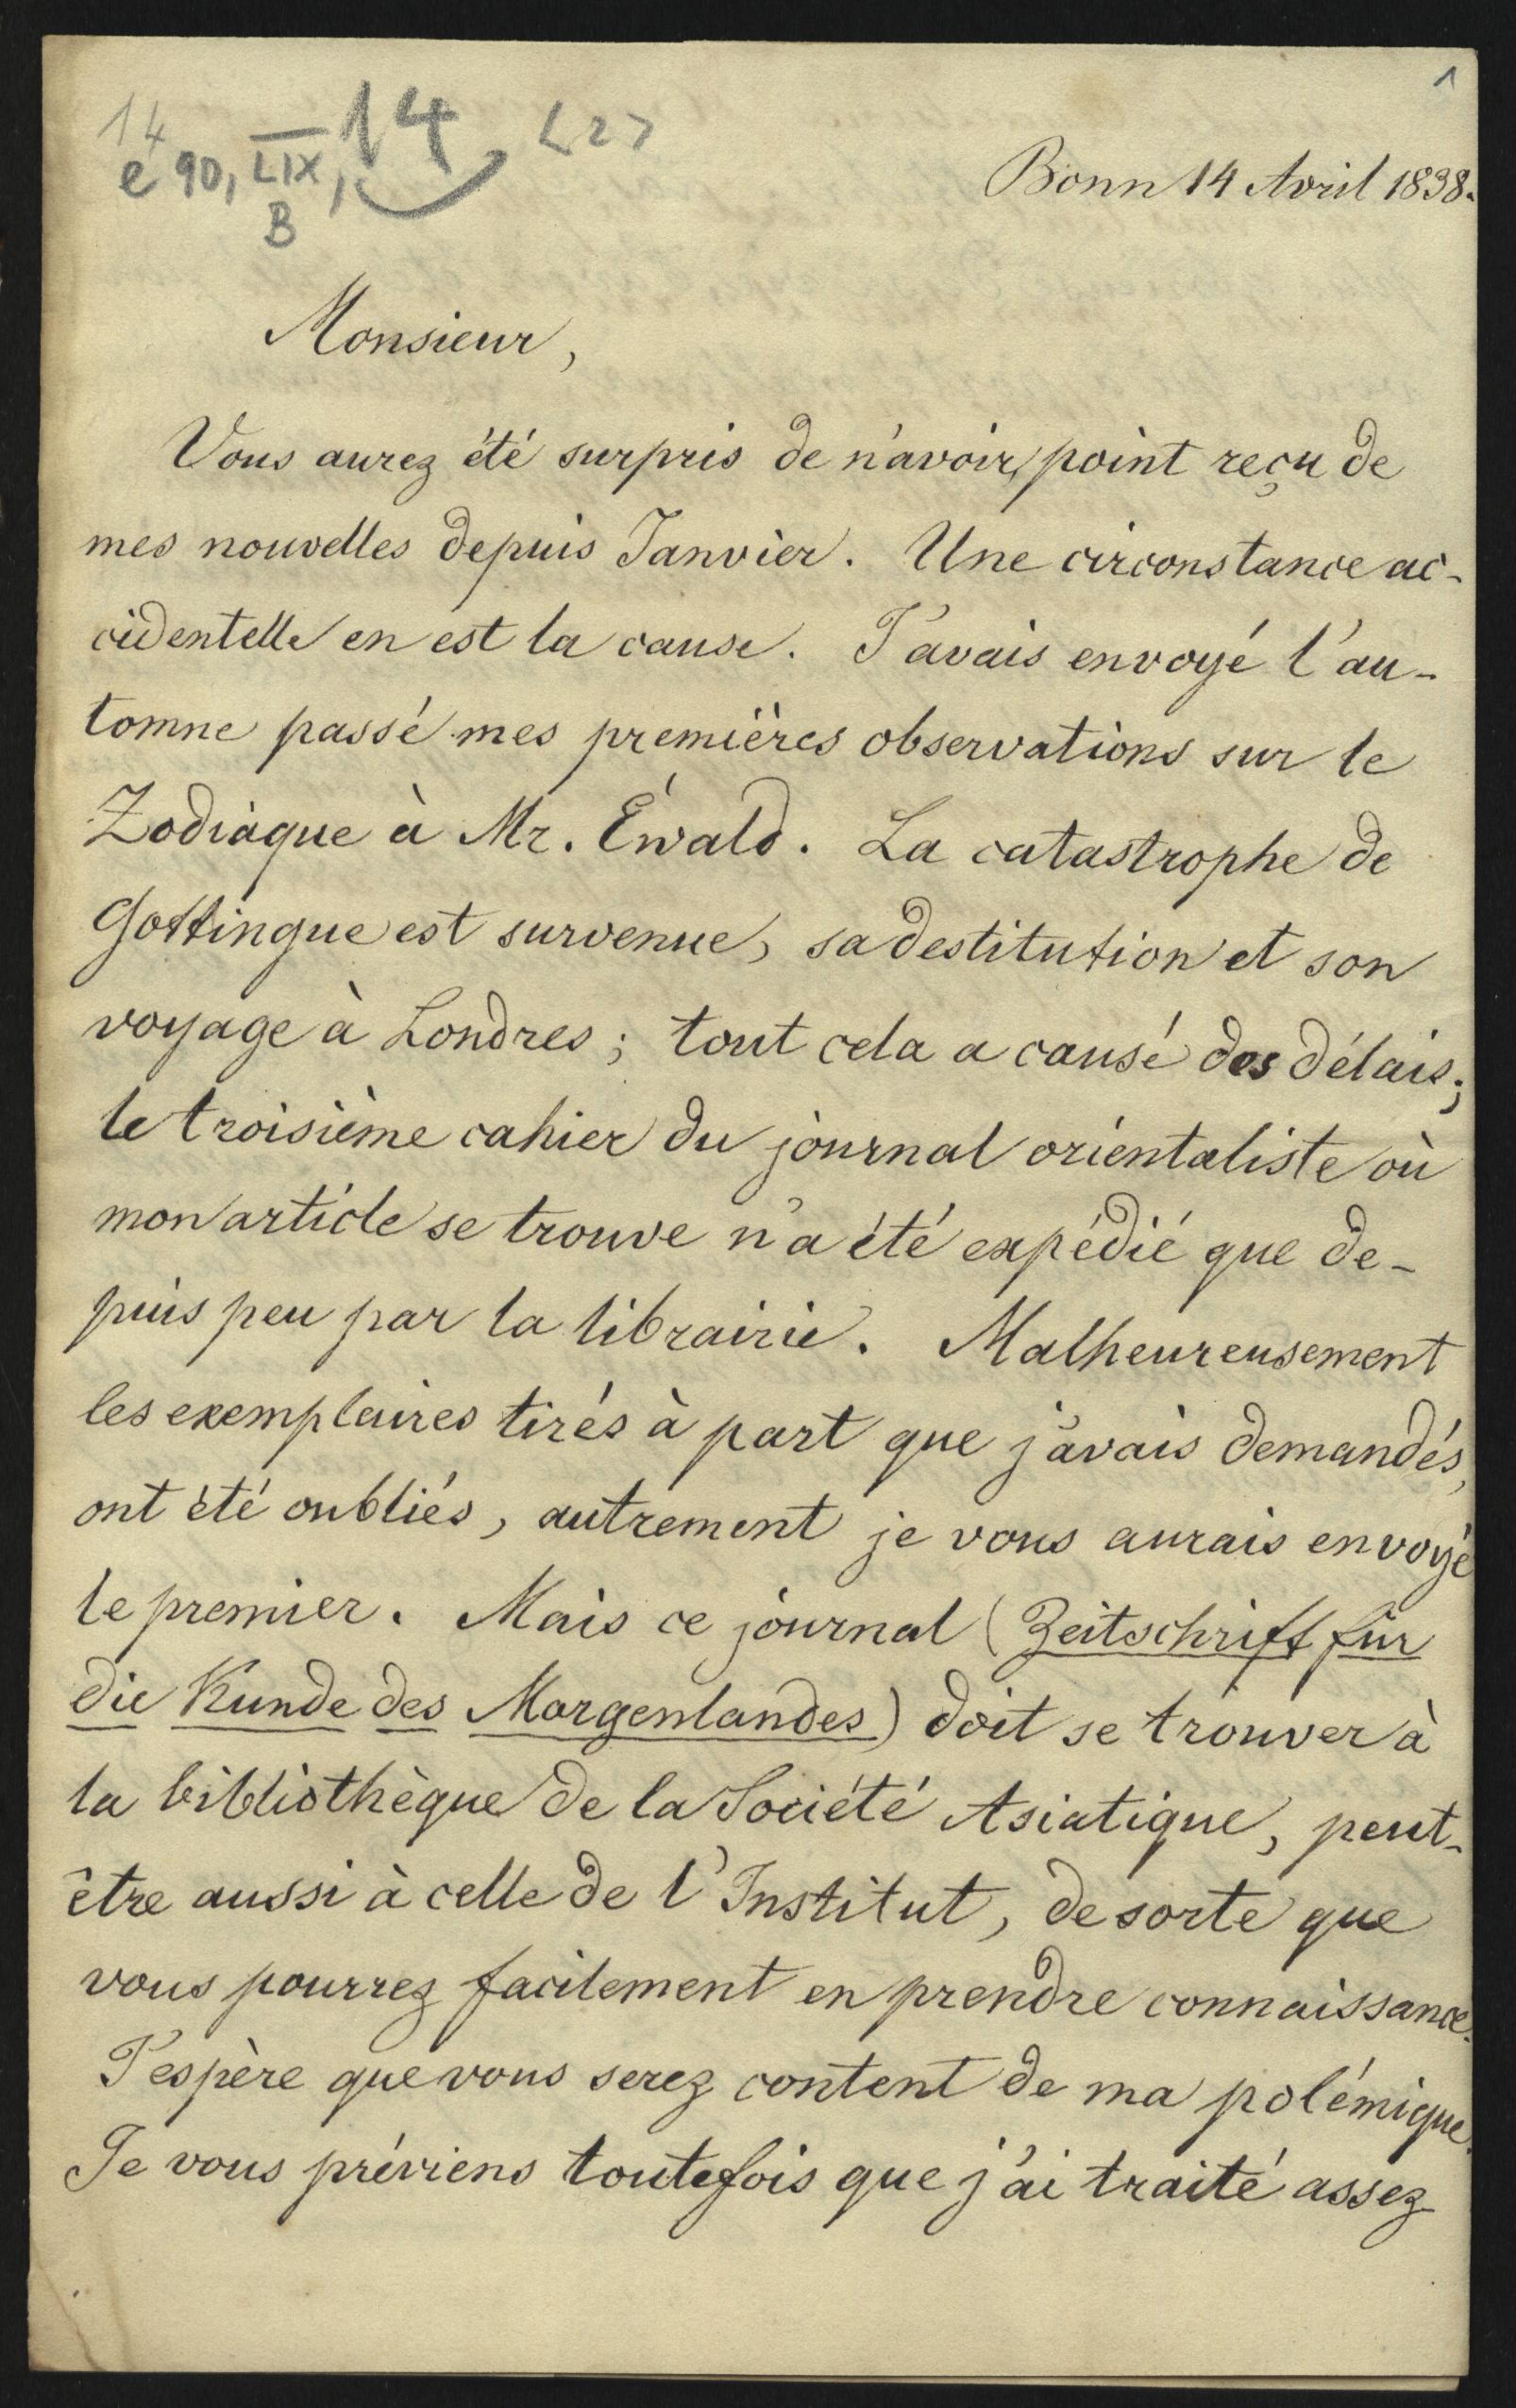 1
14
e 90, LIX, 14 <2>
B
Bonn 14 Avril 1838.
Monsieur,
Vous aurez été surpris de n'avoir point reçu de
mes nouvelles depuis Janvier. Une circonstance ac-
cidentelle en est la cause. J'avais envoyé l'au-
tomne passé mes premières observations sur le
Zodiaque à Mr. Ewald. La catastrophe de
Gottingue est survenue, sa destitution et son
voyage à Londres; tout cela a causé des délais;
le troisième cahier du journal orientaliste où
mon article se trouve n'a été expédié que de-
puis peu par la librairie. Malheureusement
les exemplaires tirés à part que j'avais demandés,
ont été oubliés, autrement je vous aurais envoyé
le premier. Mais ce journal (Zeitschrift für
die Kunde des Morgenlandes) doit se trouver à
la bibliothèque de la Société Asiatique, peut-
être aussi à celle de l'Institut, de sorte que
vous pourrez facilement en prendre connaissance.
J'espère que vous serez content de ma polémique.
Je vous préviens toutefois que j'ai traité assez